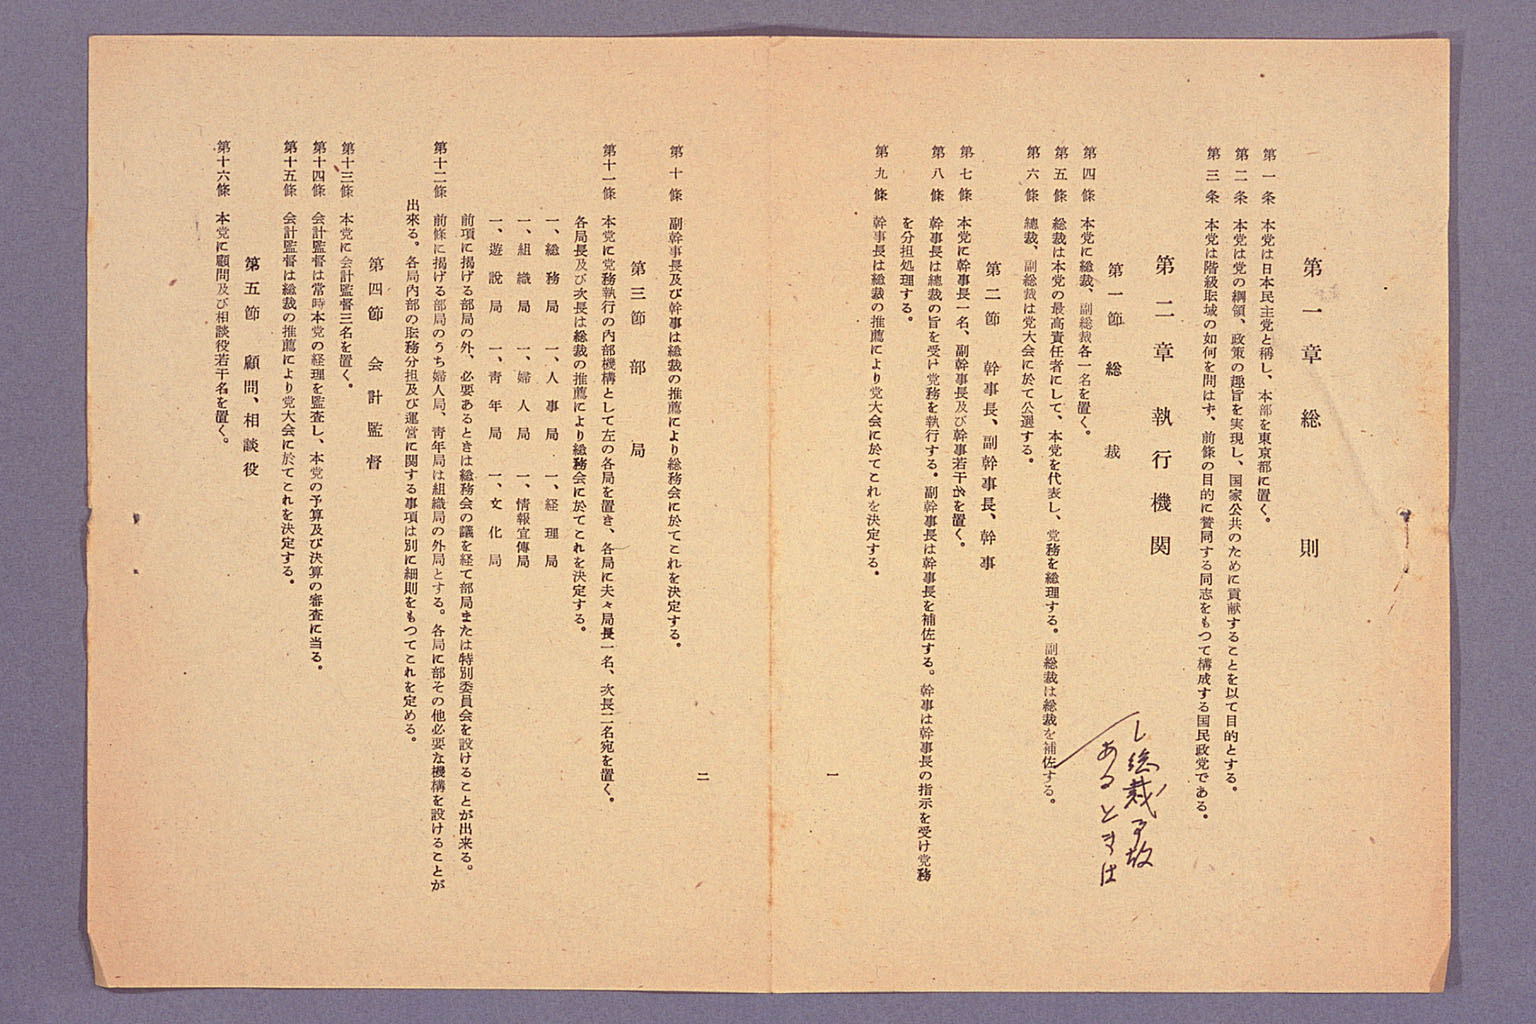 第一章　総則
第一条　本党は日本民主党と称し、本部を東京都に置く。
第二条　本党は党の綱領、政策の趣旨を実現し、国家公共のために貢献することを以て目的とする。
第三条　本党は階級職域の如何を問はず、前條の目的に賛同する同志をもつて構成する国民政党である。
第二章　執行機関
第一節　総裁
第四條　本党に総裁、副総裁各一名を置く。
第五條　総裁は本党の最高責任者にして、本党を代表し、党務を総理する。副総裁は総裁を補佐する。
し総裁事故
あるときは
第六條　總裁、副総裁は党大会に於て公選する。
第二節　幹事長、副幹事長、幹事
第七條　本党に幹事長一名、副幹事長及び幹事若干名を置く。
第八條　幹事長は總裁の旨を受け党務を執行する。副幹事長は幹事長を補佐する。幹事は幹事長の指示を受け党務
を分担処理する。
第九條　幹事長は総裁の推薦により党大会に於てこれを決定する。
一
第十條　副幹事長及び幹事は総裁の推薦により総務会に於てこれを決定する。
第三節　部局
第十一條　本党に党務執行の内部機構として左の各局を置き、各局に夫々局長一名、次長二名宛を置く。
各局長及び次長は総裁の推薦により総務会に於てこれを決定する。
一、総務局　一、人事局　一、経理局
一、組織局　一、婦人局　一、情報宣傳局
一、遊説局　一、青年局　一、文化局
前項に掲げる部局の外、必要あるときは総務会の議を経て部局または特別委員会を設けることが出来る。
第十二條　前條に掲げる部局のうち婦人局、青年局は組織局の外局とする。各局に部その他必要な機構を設けることが
出来る。各局内部の職務分担及び運営に関する事項は別に細則をもつてこれを定める。
第四節　会計監督
第十三條　本党に会計監督三名を置く。
第十四條　会計監督は常時本党の経理を監査し、本党の予算及び決算の審査に当る。
第十五條　会計監督は総裁の推薦により党大会に於てこれを決定する。
第五節　顧問、相談役
第十六條　本党に顧問及び相談役若干名を置く。
二